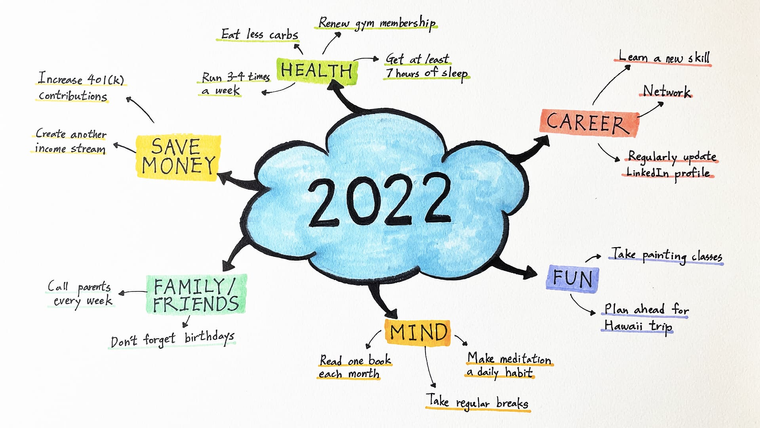 2022
HEALTH
Eat less carbs
Renew gym membership
Run 3-4 times
a week
Get at least
7 hours of sleep
CAREER
Learn a new skill
Network
Regularly update
LinkedIn profile
FUN
Take painting classes
Plan ahead for
Hawaii trip
MIND
Read one book
each month
Make meditation
a daily habit
Take regular breaks
FAMILY/
FRIENDS
Call parents
every week
Don't forget birthdays
SAVE
MONEY
Increase 401(k)
contributions
Create another
income stream